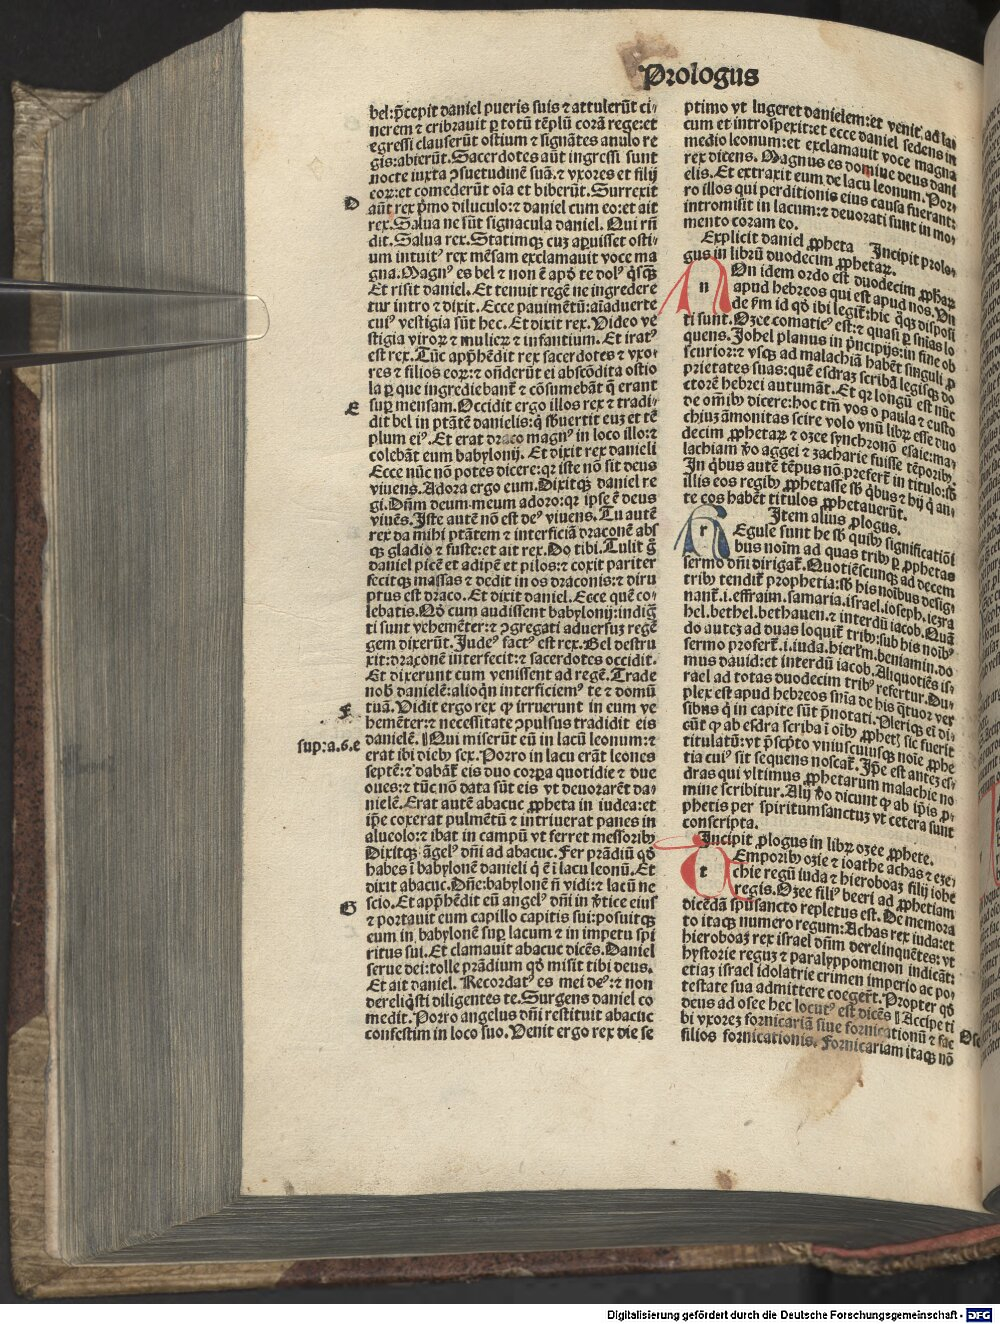 Prologus
bel:p̄cepit daniel pueris suis ⁊ attulerūt ci⸗
nerem ⁊ cribrauit ꝑ totū tēplū corā rege:et
egressi clauserūt ostium ⁊ signātes anulo re
gis:abierūt. Sacerdotes aūt ingressi sunt
nocte iuxta ↄsuetudinē suā.⁊ vxores et filij
eoꝝ:et comederūt oīa et biberūt. Surrexit
D
aūt rex p̄mo diluculo:⁊ daniel cum eo:et ait
rex. Salua ne sūt signacula daniel. Qui rn̄
dit. Salua rex. Statimqꝫ cuꝫ aꝑuisset osti⸗
um intuitꝰ rex mēsam exclamauit voce ma
gna. Magnꝰ es bel ⁊ non ē apd̄ te dolꝰ q̄sqꝫ
Et risit daniel. Et tenuit regē ne ingredere
tur intro ⁊ dixit. Ecce pauimētū:aīaduerte
cuiꝰ vestigia sūt hec. Et dixit rex. Video ve
stigia viroꝝ ⁊ mulieꝝ ⁊ infantium. Et iratꝰ
est rex. Tūc appħēdit rex sacerdotes ⁊ vxo⸗
res ⁊ filios eoꝝ:⁊ on̄derūt ei abscōdita ostio
la ꝑ que ingrediebant̄ ⁊ cōsumebāt q̄ erant
E
suꝑ mensam. Occidit ergo illos rex ⁊ tradi⸗
dit bel in ptātē danielis:q̇ sb̄uertit euꝫ et tē
plum eiꝰ. Et erat draco magnꝰ in loco illo:⁊
colebāt eum babylonij. Et dixit rex danieli
Ecce nūc nō potes dicere:qꝛ iste nō sit deus
viuens. Adora ergo eum. Dixitqꝫ daniel re
gi. Dn̄m deum meum adoro:qꝛ ipse ē deus
viuēs. Iste autē nō est deꝰ viuens. Tu autē
rex da mihi ptātem ⁊ interficiā draconē abs
qꝫ gladio ⁊ fuste:et ait rex. Do tibi. Tulit g̊
daniel picē et adipē et pilos:⁊ coxit pariter
fecitqꝫ massas ⁊ dedit in os draconis:⁊ diru
ptus est draco. Et dixit daniel. Ecce quē co⸗
lebatis. Qd̄ cum audissent babylonij:indig
ti sunt vehemēter:⁊ ↄgregati aduersuꝫ regē
gem dixerūt. Iudeꝰ factꝰ est rex. Bel destru
xit:draconē interfecit:⁊ sacerdotes occidit.
Et dixerunt cum venissent ad regē. Trade
nob̄ danielē:alioqn̄ interficiemꝰ te ⁊ domū
F
tuā. Vidit ergo rex ꝙ irruerunt in eum ve
hemēter:⁊ necessitate ↄpulsus tradidit eis
sup:a.6.e
danielē. ‖Qui miserūt eū in lacū leonum:⁊
erat ibi dieb⁹ sex. Porro in lacu erāt leones
septē:⁊ dabāt̄ eis duo corꝑa quotidie ⁊ due
oues:⁊ tūc nō data sūt eis vt deuorarēt da⸗
nielē. Erat autē abacuc ꝓpheta in iudea:et
ip̄e coxerat pulmētū ⁊ intriuerat panes in
alueolo:⁊ ibat in campū vt ferret messorib⁹
Dixitqꝫ āgelꝰ dn̄i ad abacuc. Fer prādiū qd̄
habes ī babylonē danieli q̇ ē ī lacu leonū. Et
dixit abacuc. Dn̄e:babylonē n̄ vidi:⁊ lacū ne
G
scio. Et appħēdit eū angelꝰ dn̄i in v̄tice eius
⁊ portauit eum capillo capitis sui:posuitqꝫ
eum in babylonē suꝑ lacum ⁊ in impetu spi
ritus sui. Et clamauit abacuc dicēs. Daniel
serue dei:tolle prādium qd̄ misit tibi deus.
Et ait daniel. Recordatꝰ es mei deꝰ:⁊ non
dereliq̇sti diligentes te. Surgens daniel co
medit. Porro angelus dn̄i restituit abacuc
confestim in loco suo. Venit ergo rex die se
ptimo vt lugeret danielem:et venit ad la⸗
cum et introspexit:et ecce daniel sedens in
medio leonum:et exclamauit voce magna
rex dicens. Magnus es domine deus dani
elis. Et extraxit eum de lacu leonum. Por⸗
ro illos qui perditionis eius causa fuerant:
intromisit in lacum:⁊ deuorati sunt in mo⸗
mento coram eo.
Explicit daniel ꝓpheta Incipit prolo⸗
gus in librū duodecim ꝓphetaꝝ.
n On idem ordo est duodecim ꝓphaꝝ
apud hebreos qui est apud nos. Vn
de ẜm id qd̄ ibi legit̄:hic q̇qꝫ disposi
ti sunt. Ozee comaticꝰ est:⁊ quasi ꝑ sn̄ias lo
quens. Iohel planus in p̄ncipijs:in fine ob
scurior:⁊ vsqꝫ ad malachiā habēt singuli ꝓ
prietates suas:quē esdraꝫ scribā legisqꝫ do
ctorē hebrei autumāt. Et qꝛ longū est nūc
de om̄ib⁹ dicere:hoc tm̄ vos o paula ⁊ eusto
chiuꝫ āmonitas scire volo vnū libꝝ esse duo
decim ꝓphetaꝝ ⁊ ozee synchronō esaie:ma⸗
lachiam v̊o aggei ⁊ zacharie fuisse tēporib⁹.
In q̇bus autē tēpus nō prefert̄ in titulo:sb̄
illis eos regib⁹ ꝓphetasse sb̄ q̇bus ⁊ hij q̇ an⸗
te eos habēt titulos ꝓphetauerūt.
Item alius ꝓlogus.
r Egule sunt he sb̄ quib⁹ significatiōi
bus noīm ad quas trib⁹ ꝑ ꝓphetas
sermo dn̄i dirigat̄. Quotiēscunqꝫ ad decem
trib⁹ tendit̄ prophetia:sb̄ his noībus desig⸗
nant̄.i.effraim.samaria.israel.ioseph.iezra
hel.bethel.bethauen.⁊ interdū iacob. Quā
do auteꝫ ad duas loquit̄ trib⁹:sub his noīb⁹
sermo profert̄.i.iuda.hierl̄m.beniamin.do
mus dauid:et interdū iacob. Aliquotiēs is⸗
rael ad totas duodecim tribꝰ refertur. Du⸗
plex est apud hebreos sn̄ia de his q̇tuor ver
sibus q̇ in capite sūt p̄notati. Pleriqꝫ eī di⸗
cūt ꝙ ab esdra scriba ī oīb⁹ ꝓphet̄ sic fuerit
titulatū:vt p̄scp̄to vniuscuiusqꝫ noīe ꝓphe
tia cuiꝰ sit sequens noscat̄. Ip̄e est anteꝫ es⸗
dras qui vltimus ꝓphetarum malachie no
mine scribitur. Alij v̊o dicunt ꝙ ab ip̄is ꝓ⸗
phetis per spiritumsanctuꝫ vt cetera sunt
conscripta.
Incipit ꝓlogus in libꝝ ozee ꝓphete.
t Emporib⁹ ozie ⁊ ioathe achas ⁊ eze⸗
chie regū iuda ⁊ hieroboaꝫ filij iohe
regis. Ozee filiꝰ beeri ad ꝓphetiam
dicēdā spūsancto repletus est. De memora
to itaqꝫ numero regum:Achas rex iuda:et
hieroboaꝫ rex israel dn̄m derelinquētes: vt
hystorie reguꝫ ⁊ paralyppomenon indicāt:
etiaꝫ israel idolatrie crimen imperio ac po⸗
testate sua admittere coegerūt. Propter qd̄
deus ad osee hec locutꝰ est dicēs ‖Accipe ti
bi vxoreꝫ fornicariā siue fornicationū ⁊ fac
Ose
filios fornicationis. Fornicariam itaqꝫ nō
Digitalisierung gefördert durch die Deutsche Forschungsgemeinschaft - DFG